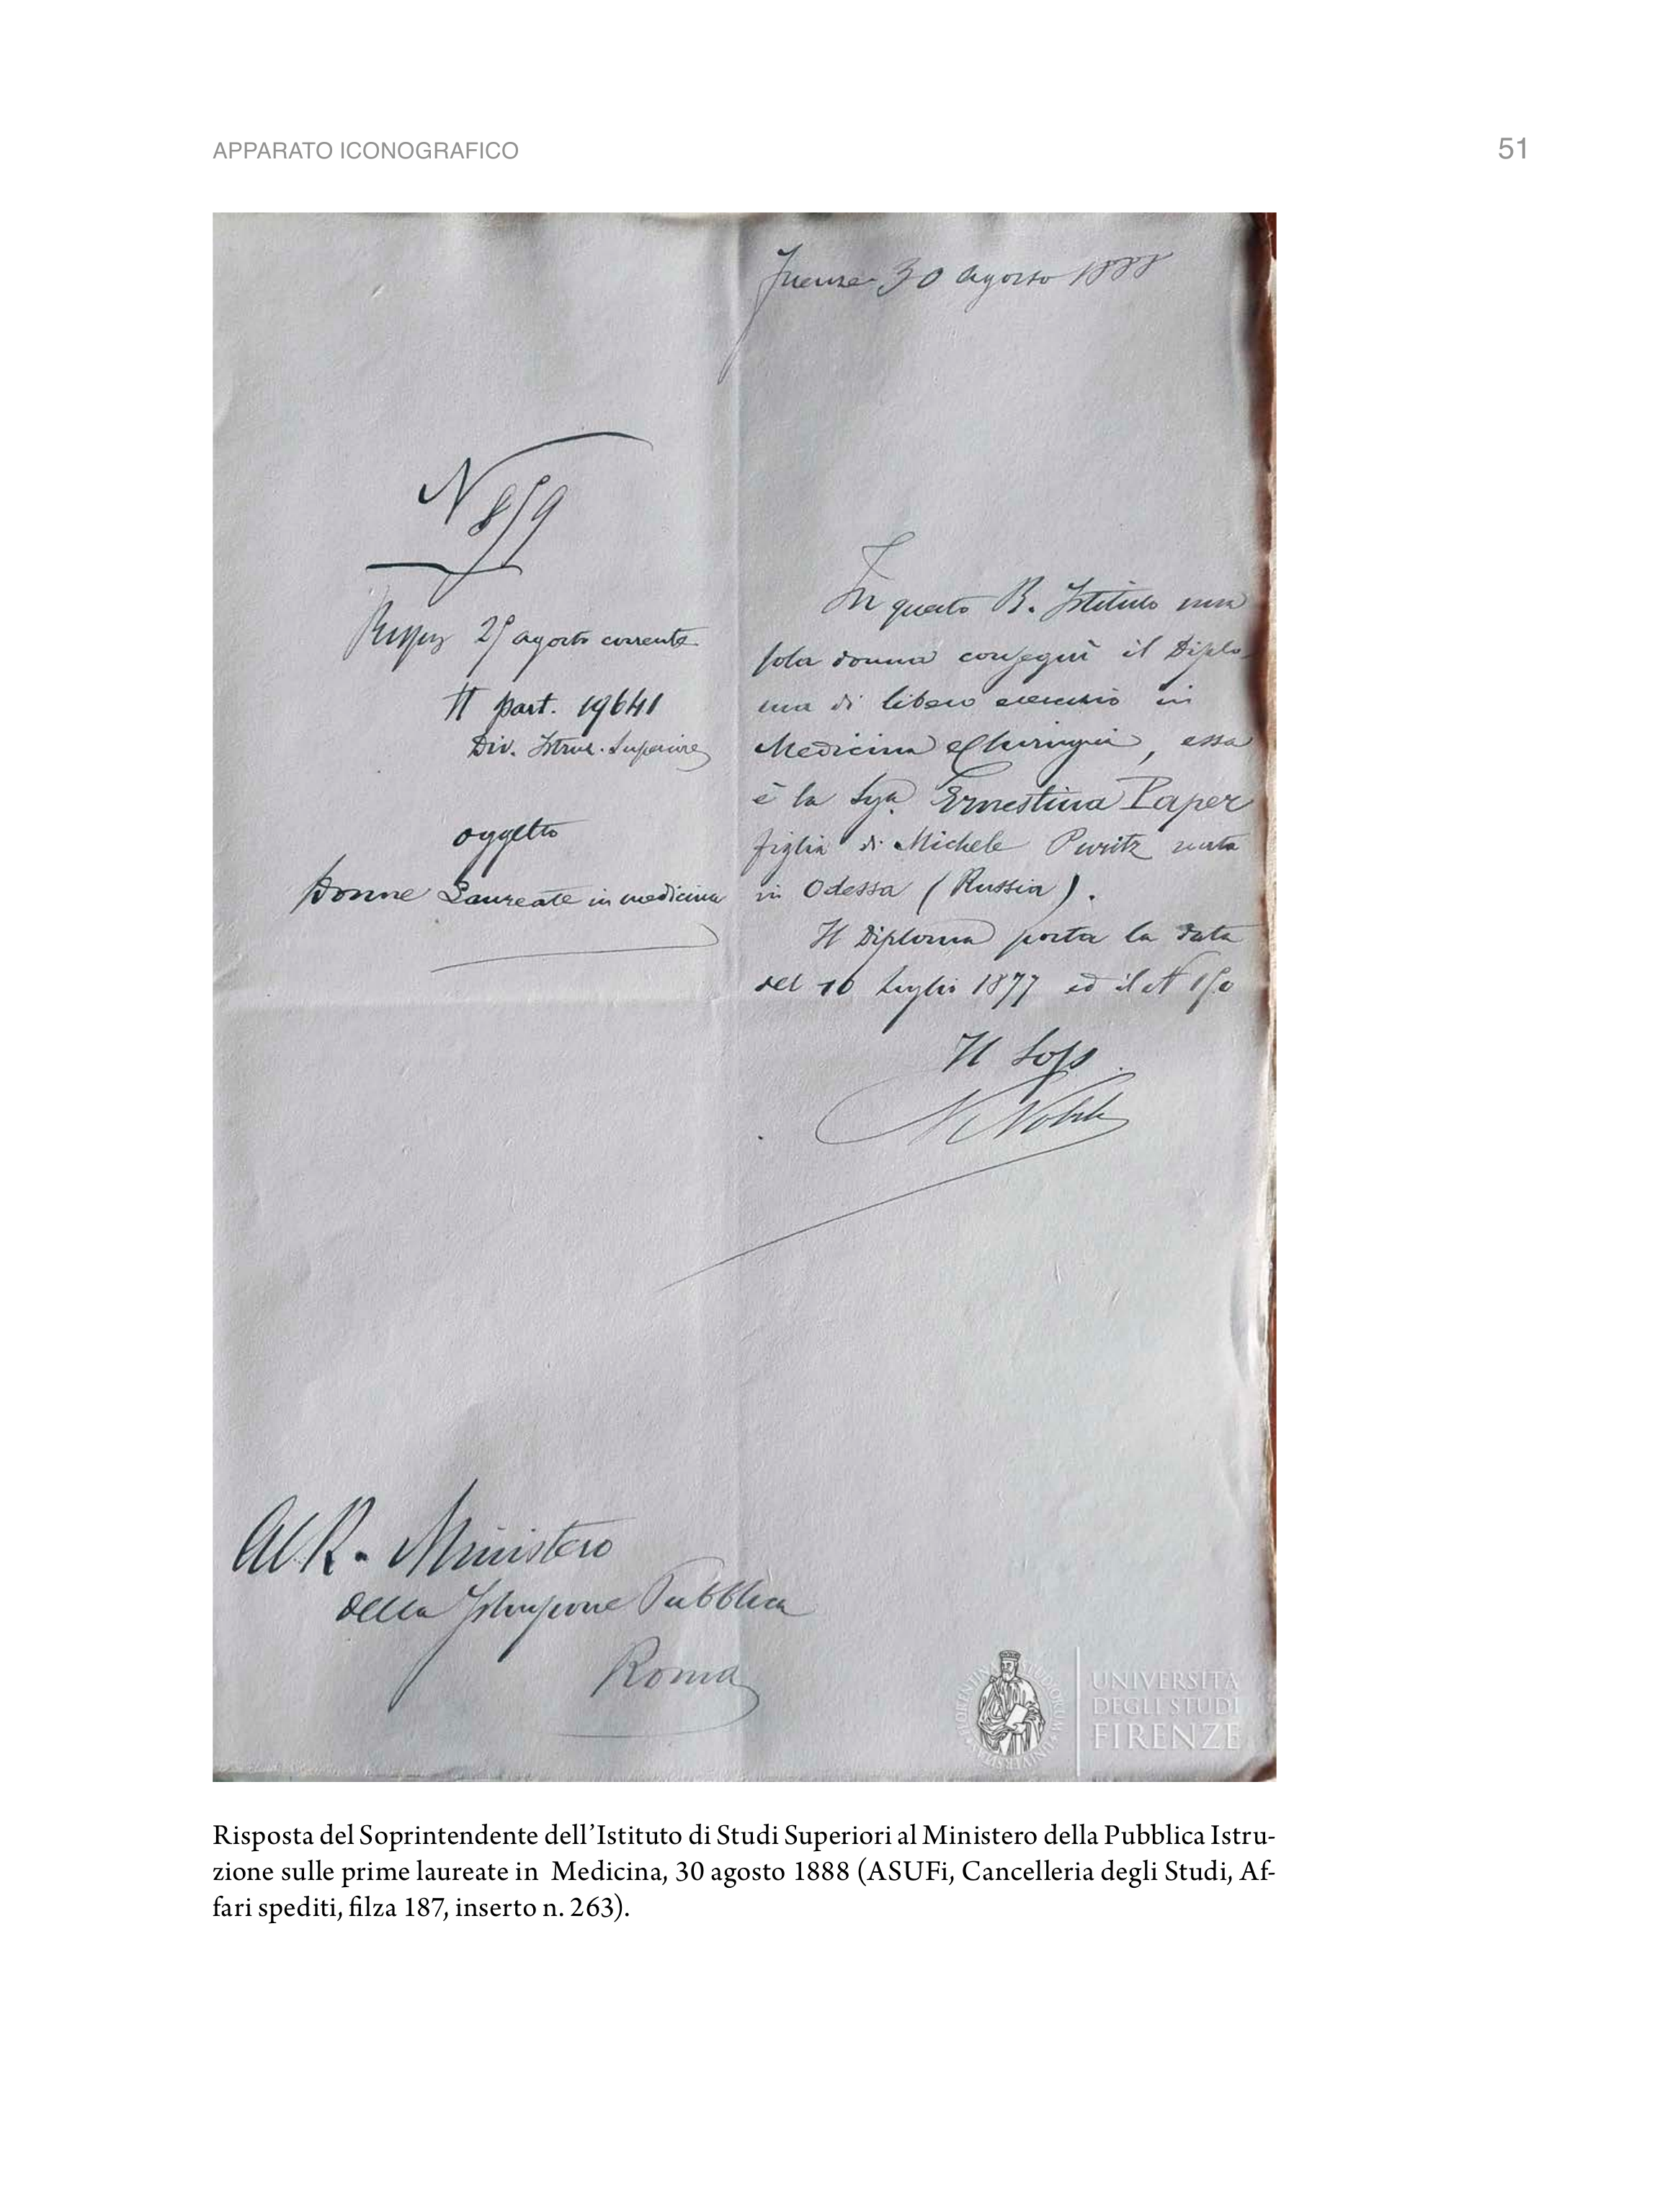 APPARATO ICONOGRAFICO
51
Firenze 30 agosto 1888
N 859
Rispos 25 agosto corrente
N part. 19641
Div. Istruz. Superiore
oggetto
Donne Laureate in medicina
In questo R. Istituto una
sola donna conseguì il Diplo-
ma di libero esercizio in
Medicina e Chirurgia, essa
è la Sig.a Ernestina Paper
figlia di Michele Puritz nata
in Odessa (Russia).
Il Diploma porta la data
del 16 Luglio 1877 ed il N 150
Il Sop.
N Nobili
Al R. Ministero
della Istruzione Pubblica
Roma
FLORENTINA STUDIORUM UNIVERSITAS
UNIVERSITÀ
DEGLI STUDI
FIRENZE
Risposta del Soprintendente dell’Istituto di Studi Superiori al Ministero della Pubblica Istru-
zione sulle prime laureate in Medicina, 30 agosto 1888 (ASUFi, Cancelleria degli Studi, Af-
fari spediti, filza 187, inserto n. 263).